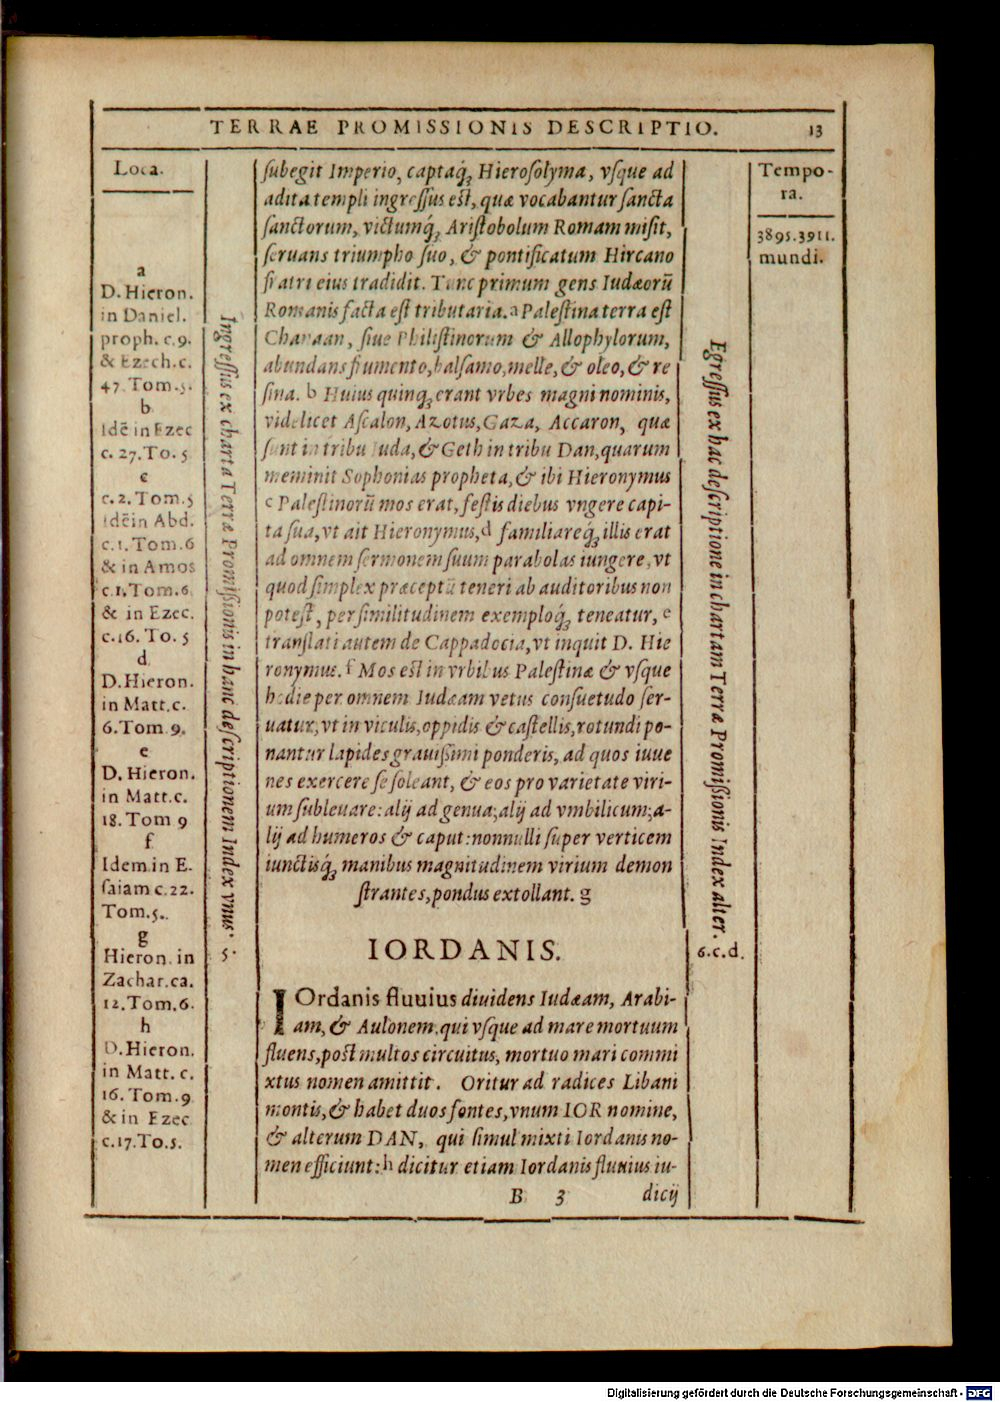 TERRAE PROMISSIONIS DESCRIPTIO. 13
Loca.
a
D. Hieron.
in Daniel.
proph. c. 9.
& Ezech. c.
47. Tom. 5.
b
Idē in Ezec
c. 27. To. 5
c
c. 2. Tom. 5
Idēin Abd.
c. 1. Tom. 6
& in Amos
c. 1. Tom. 6.
& in Ezec.
c. 16. To. 5
d
D. Hieron.
in Matt. c.
6. Tom 9.
e
D. Hieron.
in Matt. c.
18. Tom 9
f
Idem in E.
ſaiam c. 22.
Tom. 5.
g
Hieron. in
Zachar. ca.
12. Tom. 6.
h
D. Hieron.
in Matt. c.
16. Tom. 9
& in Ezec
c. 17. To. 5.
Ingreſſus ex charta Terræ Promiſsionis in hanc deſcriptionem Index vnus.
5.
ſubegit Imperio, captaq́ꝫ Hieroſolyma, vſque ad
adita templi ingreſſus eſt, quæ vocabantur ſancta
ſanctorum, victumq́ꝫ Ariſtobolum Romam miſit,
ſeruans triumpho ſuo, & pontificatum Hircano
fratri eius tradidit. Tunc primum gens Iudæorū
Romanis facta eſt tributaria. a Paleſtina terra eſt
Chanaan, ſiue Philiſtinorum & Allophylorum,
abundans frumento, balſamo, melle, & oleo, & re
ſina. b Huius quinqꝫ erant vrbes magni nominis,
videlicet Aſcalon, Azotus, Gaza, Accaron, quæ
ſunt in tribu Iuda, & Geth in tribu Dan, quarum
meminit Sophonias propheta, & ibi Hieronymus
c Paleſtinorū mos erat, feſtis diebus vngere capi-
ta ſua, vt ait Hieronymus, d familiareq́ꝫ illis erat
ad omnem ſermonem ſuum parabolas iungere, vt
quod ſimplex præceptū teneri ab auditoribus non
poteſt, per ſimilitudinem exemploq́ꝫ teneatur, e
tranſlati autem de Cappadocia, vt inquit D. Hie
ronymus. f Mos eſt in vrbibus Paleſtinæ & vſque
hodie per omnem Iudæam vetus conſuetudo ſer-
uatur, vt in viculis, oppidis & caſtellis, rotundi po-
nantur lapides grauiſsimi ponderis, ad quos iuue
nes exercere ſe ſoleant, & eos pro varietate viri-
um ſubleuare: alij ad genua; alij ad vmbilicum; a-
lij ad humeros & caput: nonnulli ſuper verticem
iunctisq́ꝫ manibus magnitudinem virium demon
ſtrantes, pondus extollant. g
IORDANIS.
IOrdanis fluuius diuidens Iudæam, Arabi-
am, & Aulonem. qui vſque ad mare mortuum
fluens, poſt multos circuitus, mortuo mari commi
xtus nomen amittit. Oritur ad radices Libani
montis, & habet duos fontes, vnum IOR nomine,
& alterum DAN, qui ſimul mixti Iordanis no-
men efficiunt: h dicitur etiam Iordanis fluuius iu-
B 3 dicij
Egreſſus ex hac deſcriptione in chartam Terræ Promiſsionis Index alter.
6. c. d.
Tempo-
ra.
3895. 3911.
mundi.
Digitalisierung gefördert durch die Deutsche Forschungsgemeinschaft - DFG